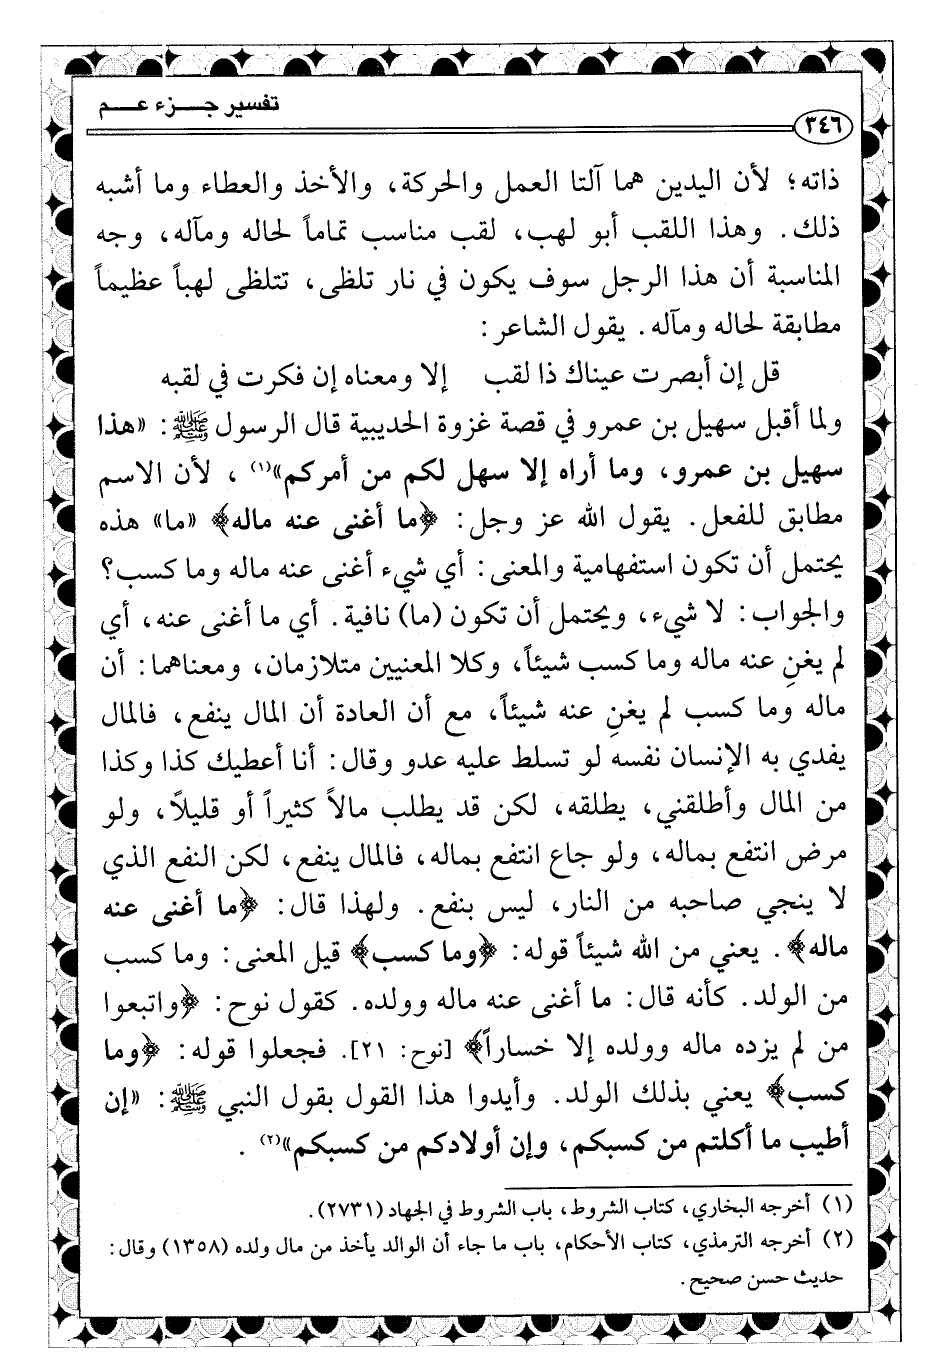 تفسير جزء عم
٣٤٦
ذاته؛ لأن اليدين هما آلتا العمل والحركة، والأخذ والعطاء وما أشبه
ذلك. وهذا اللقب أبو لهب، لقب مناسب تماماً لحاله ومآله، وجه
المناسبة أن هذا الرجل سوف يكون في نار تلظى، تتلظى لهباً عظيماً
مطابقة لحاله ومآله. يقول الشاعر:
قل إن أبصرت عيناك ذا لقب إلا ومعناه إن فكرت في لقبه
ولما أقبل سهيل بن عمرو في قصة غزوة الحديبية قال الرسول ﷺ: «هذا
سهيل بن عمرو، وما أراه إلا سهل لكم من أمركم»(١)، لأن الاسم
مطابق للفعل. يقول الله عز وجل: ﴿ما أغنى عنه ماله﴾ «ما» هذه
يحتمل أن تكون استفهامية والمعنى: أي شيء أغنى عنه ماله وما كسب؟
والجواب: لا شيء، ويحتمل أن تكون (ما) نافية. أي ما أغنى عنه، أي
لم يغنِ عنه ماله وما كسب شيئاً، وكلا المعنيين متلازمان، ومعناهما: أن
ماله وما كسب لم يغنِ عنه شيئاً، مع أن العادة أن المال ينفع، فالمال
يفدي به الإنسان نفسه لو تسلط عليه عدو وقال: أنا أعطيك كذا وكذا
من المال وأطلقني، يطلقه، لكن قد يطلب مالاً كثيراً أو قليلاً، ولو
مرض انتفع بماله، ولو جاع انتفع بماله، فالمال ينفع، لكن النفع الذي
لا ينجي صاحبه من النار، ليس بنفع. ولهذا قال: ﴿ما أغنى عنه
ماله﴾. يعني من الله شيئاً قوله: ﴿وما كسب﴾ قيل المعنى: وما كسب
من الولد. كأنه قال: ما أغنى عنه ماله وولده. كقول نوح: ﴿واتبعوا
من لم يزده ماله وولده إلا خساراً﴾ [نوح: ٢١]. فجعلوا قوله: ﴿وما
كسب﴾ يعني بذلك الولد. وأيدوا هذا القول بقول النبي ﷺ: «إن
أطيب ما أكلتم من كسبكم، وإن أولادكم من كسبكم»(٢).
(١) أخرجه البخاري، كتاب الشروط، باب الشروط في الجهاد (٢٧٣١).
(٢) أخرجه الترمذي، كتاب الأحكام، باب ما جاء أن الوالد يأخذ من مال ولده (١٣٥٨) وقال:
حديث حسن صحيح.